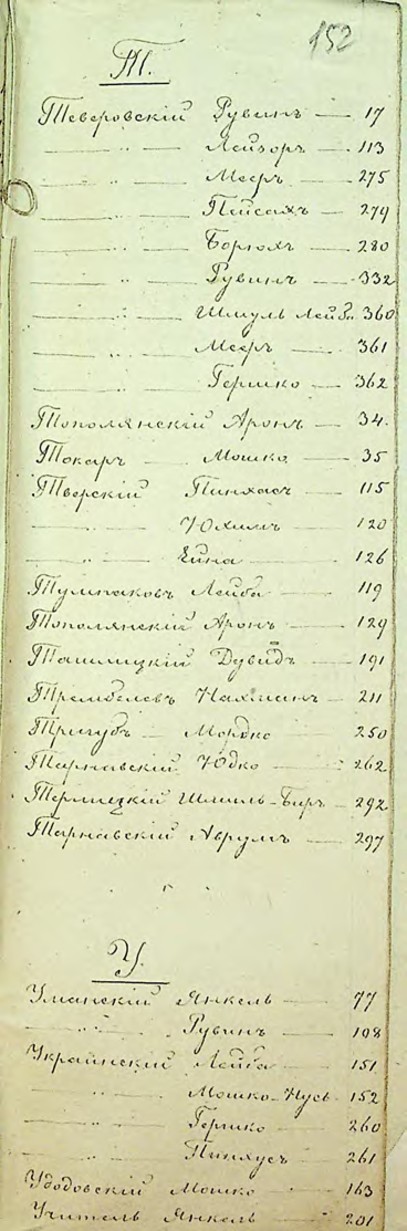 152
Т.
Теверовскій Рувинъ — 17
— „ — Лейзоръ — 113
— „ — Мееръ — 275
— „ — Пейсахъ — 279
— „ — Борюхъ — 280
— „ — Рувинъ — 332
— „ — Шмуль Лейб. 360
— „ — Мееръ — 361
— „ — Гершко — 362
Тополянскій Аронъ — 34
Токарь — Мошко — 35
Тверскій Пинхасъ — 115
— „ — Юхимъ — 120
— „ — 126
Тумпаковъ Лейба — 119
Тополянскій Аронъ — 129
Ташлицкій Дувидъ — 191
Трембелевъ Нахманъ — 211
Тригубъ — Мордко 250
Тарнавскій Юдко — 262
292
Тарнавскій Аврумъ — 297
У.
Уманскій Янкель — 77
— „ — Рувинъ — 108
Украинскій Лейба — 151
— „ — Мошко-Нусъ — 152
— „ — Гершко — 260
— „ — Пинхусъ — 261
Удодовскій Мошко — 163
Учитель Янкель — 201